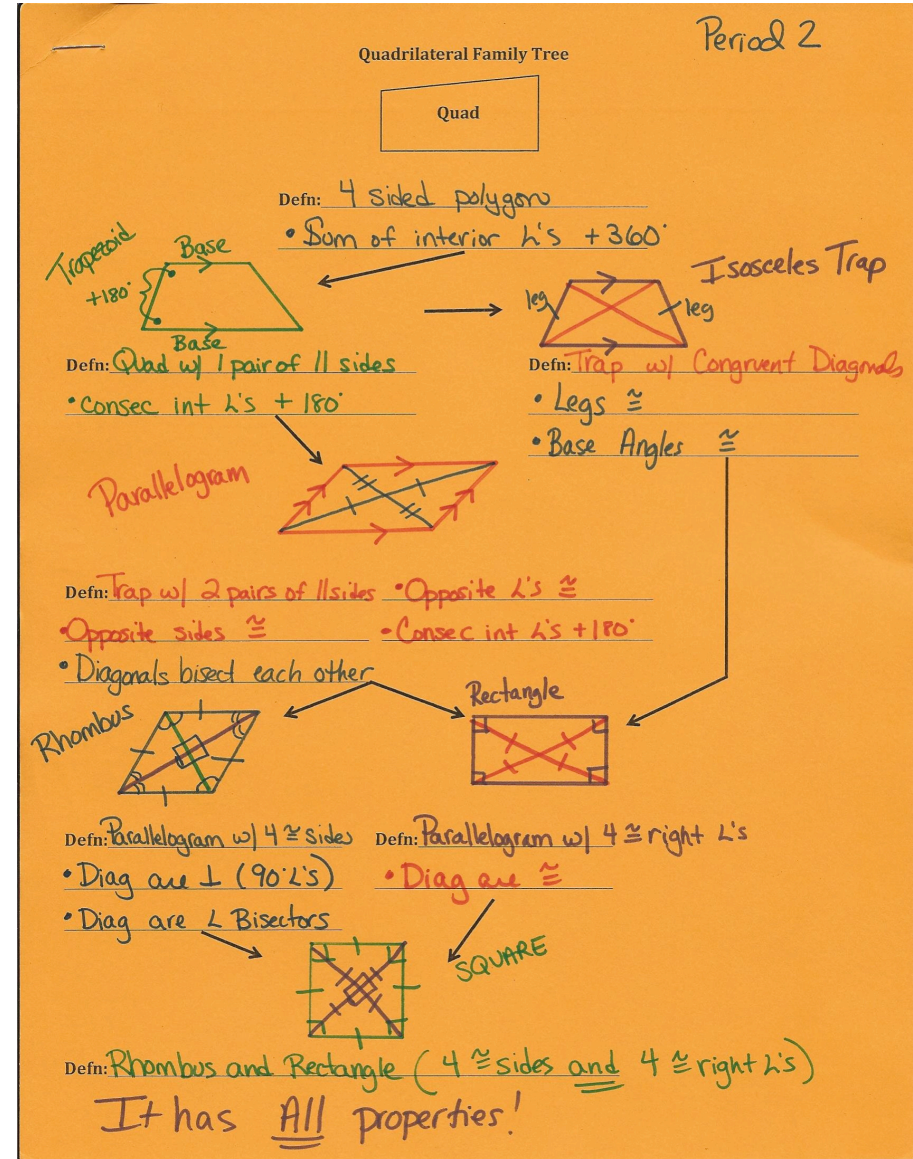 Period 2
Quadrilateral Family Tree
Quad
Defn: 4 sided polygon
• Sum of interior ∠'s +360°
Trapezoid
Base
+180°
Base
Isosceles Trap
leg
leg
Defn: Quad w/ 1 pair of || sides
• Consec int ∠'s + 180°
Defn: Trap w/ Congruent Diagonals
• Legs ≅
• Base Angles ≅
Parallelogram
Defn: Trap w/ 2 pairs of || sides • Opposite ∠'s ≅
• Opposite sides ≅ - Consec int ∠'s +180°
• Diagonals bisect each other
Rhombus
Rectangle
Defn: Parallelogram w/ 4 ≅ sides
• Diag are ⊥ (90° ∠'s)
• Diag are ∠ Bisectors
Defn: Parallelogram w/ 4 ≅ right ∠'s
• Diag are ≅
SQUARE
Defn: Rhombus and Rectangle (4 ≅ sides and 4 ≅ right ∠'s)
It has All properties!